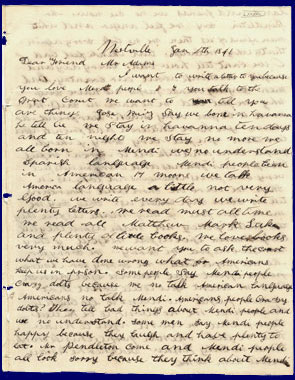 Westville Jan 4th 1841
Dear Friend Mr Adams
I want to write a letter to you because
you love Mendi people & you talk to the
great Court we want to tell you
one thing Jose Ruiz say we born in havanna
he tell lie we stay in havanna ten days
and ten nights we stay no more we
all born in Mendi we no understand
Spanish language Mendi people been
in American 17 moons we talk
America language a little not very
Good we write every day we write
plenty letters we read most all time
we read all Matthew Mark Luke
and plenty of little books we love books
very much we want you to ask the court
what we have done wrong what for Americans
keep us in prison some people say Mendi people
Crazy dolts because we no talk American language
Americans no talk Mendi Americans people Crazy
dolts? They tell bad things about Mendi people and
we no understand Some men say Mendi people
happy because they laugh and have plenty to
eat Mr Pendleton come and Mendi people
all look sorry because they think about Mendi